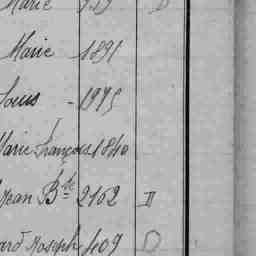 Marie
Marie 1891
Louis - 1975
Marie François 1840
Jean Bte 2162 II
Joseph 409 D